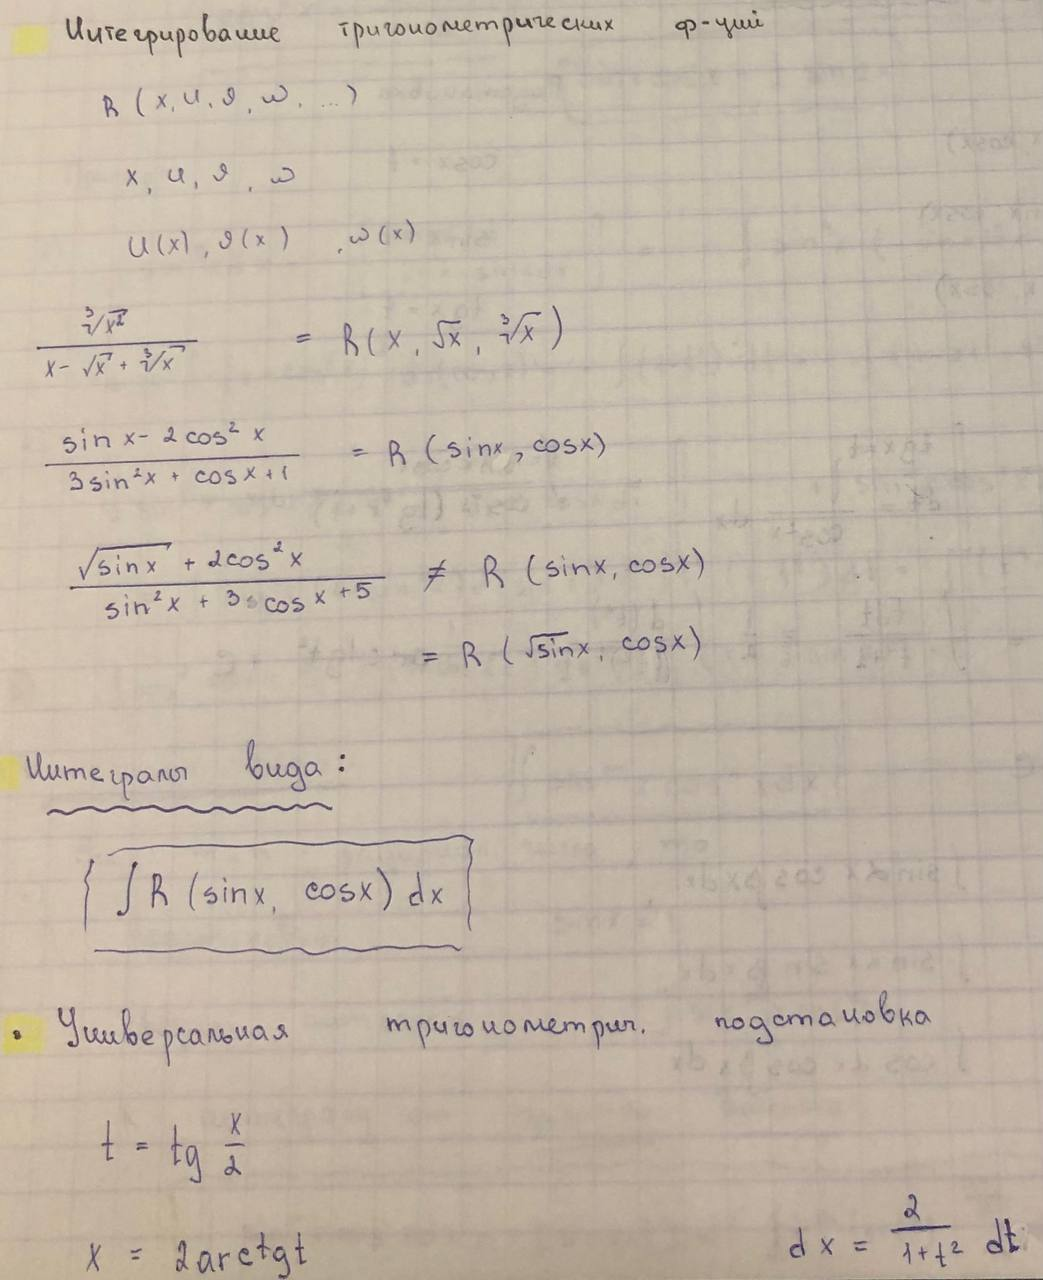 Интегрирование тригонометрических ф-ций
R (x, u, v, w, ...)
x, u, v, w
u(x), v(x), w(x)
∛x² / (x - √x + ∛x) = R(x, √x, ∛x)
(sin x - 2 cos² x) / (3 sin² x + cos x + 1) = R (sin x, cos x)
(√sin x + 2 cos² x) / (sin² x + 3 cos x + 5) ≠ R (sin x, cos x)
= R (√sin x, cos x)
Интегралы вида:
∫ R (sin x, cos x) dx
• Универсальная тригонометрич. подстановка
t = tg x/2
x = 2 arctg t dx = 2 / (1 + t²) dt